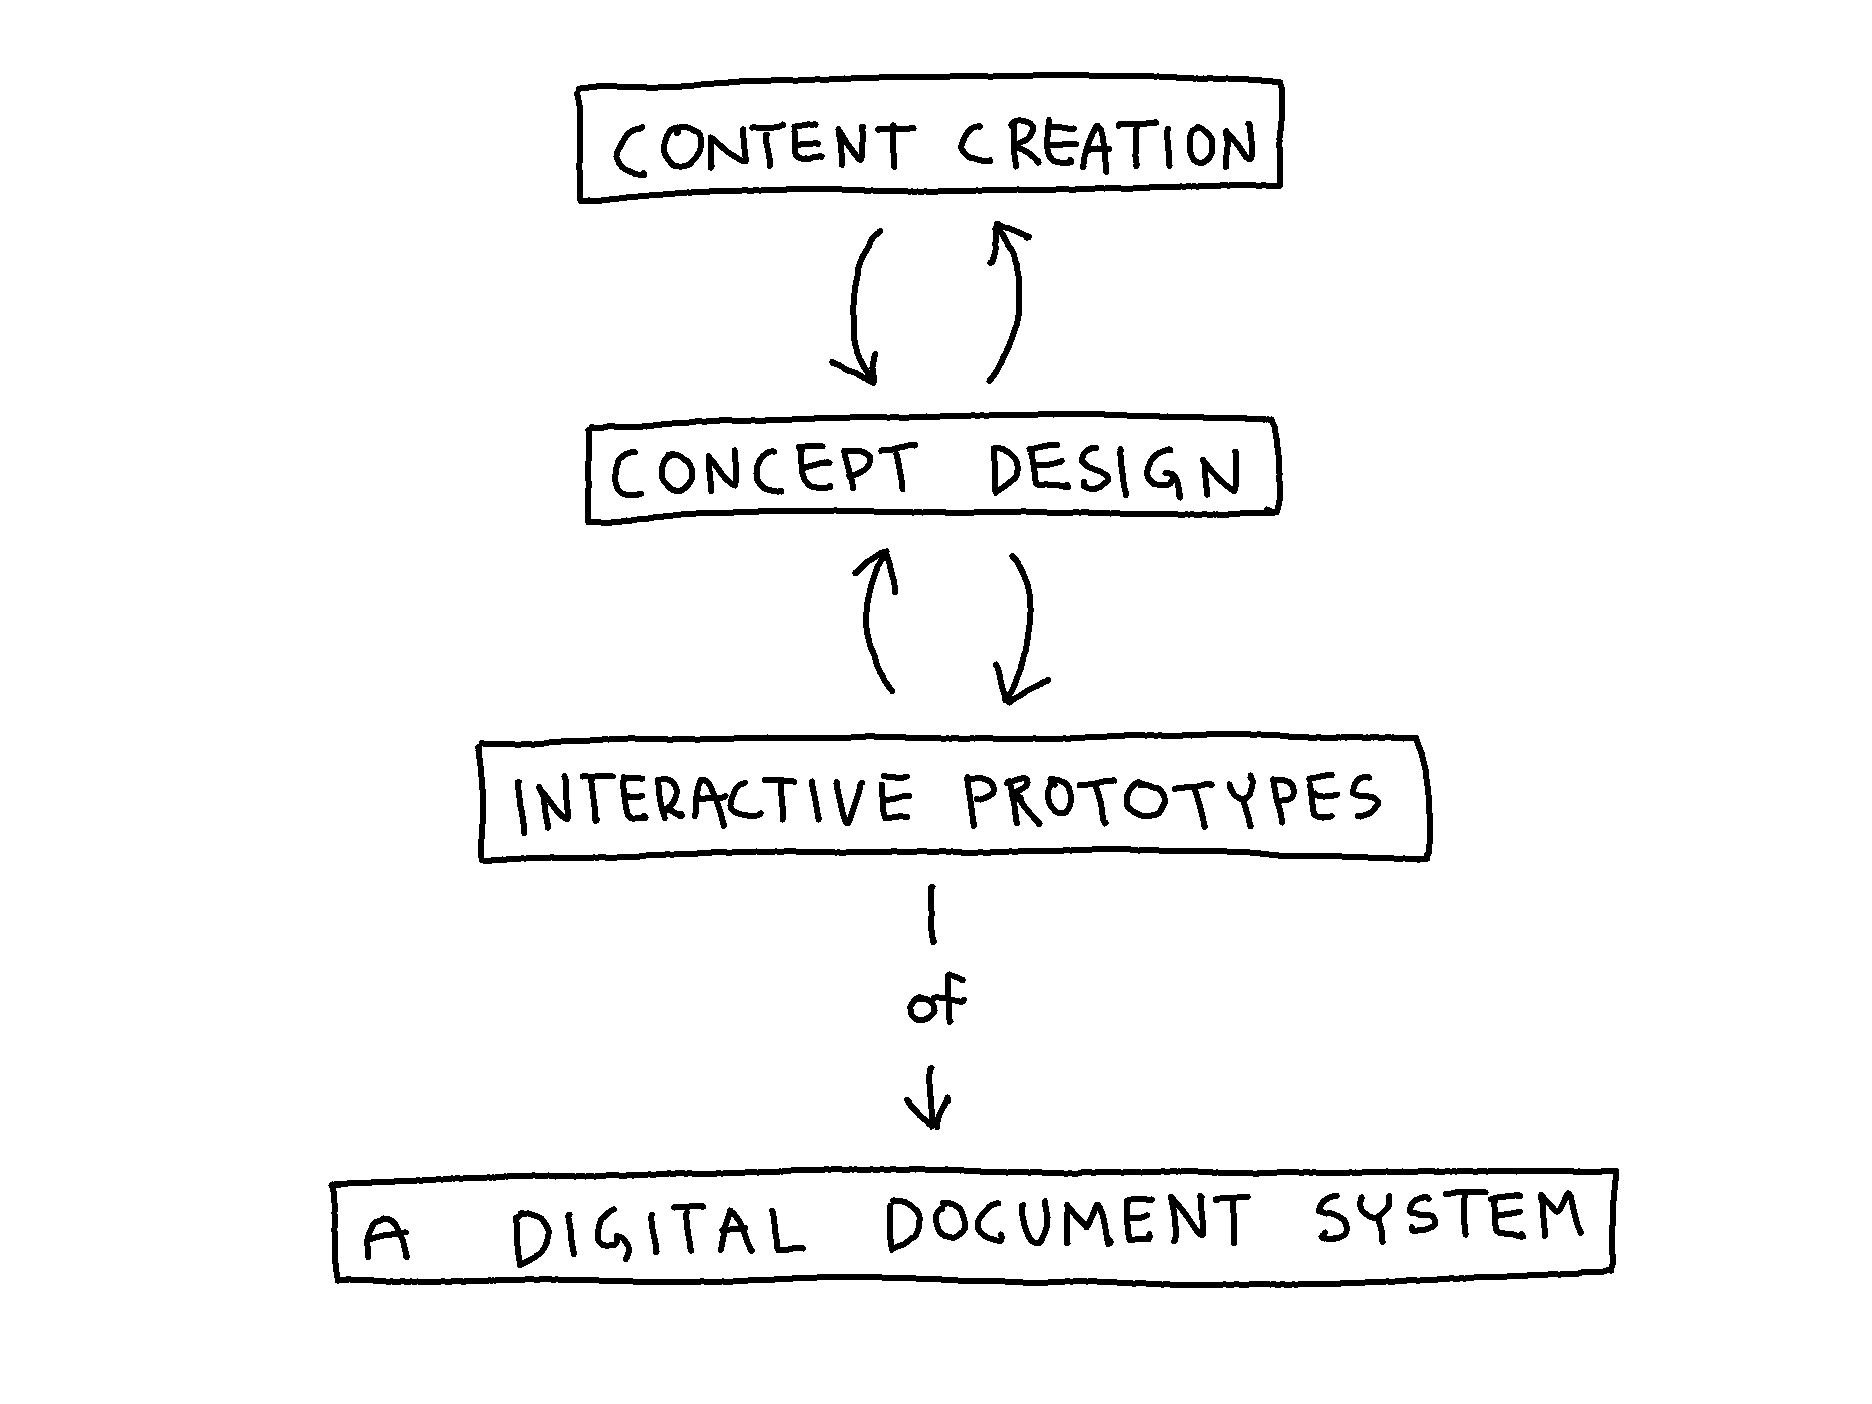 CONTENT CREATION
CONCEPT DESIGN
INTERACTIVE PROTOTYPES
of
A DIGITAL DOCUMENT SYSTEM